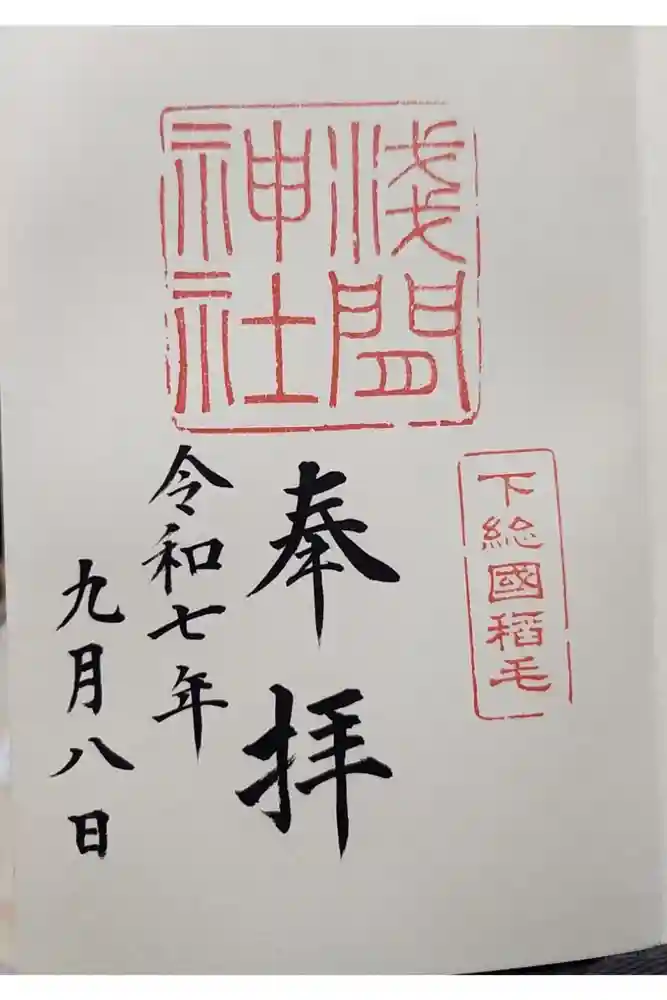 淺間
神社
下総國稻毛
奉拝
令和七年
九月八日